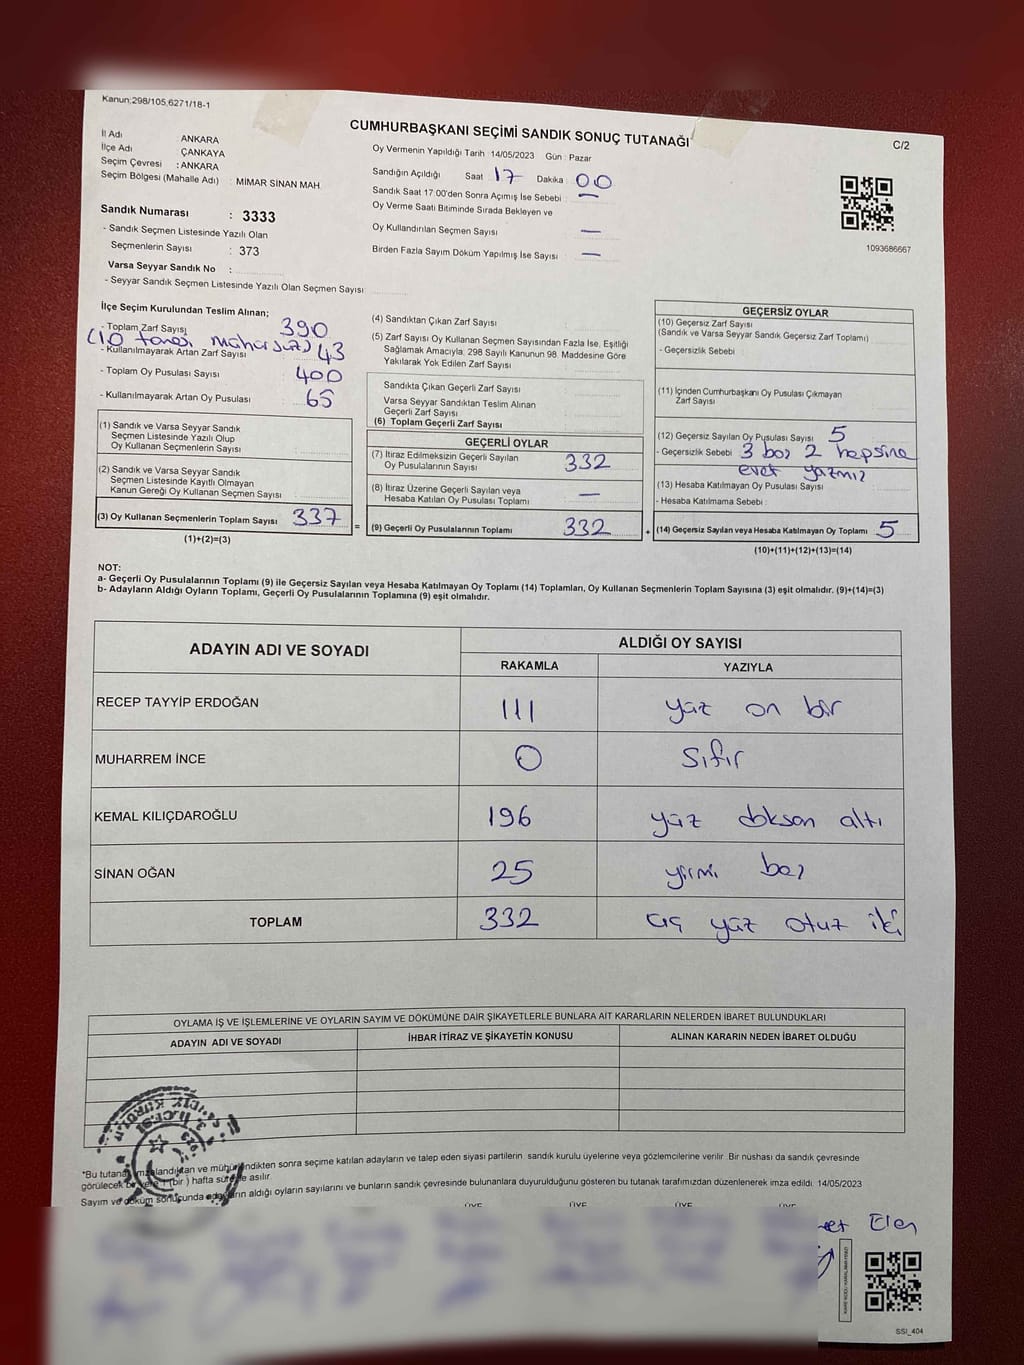 Kanun:298/105,6271/18-1
CUMHURBAŞKANI SEÇİMİ SANDIK SONUÇ TUTANAĞI
C/2
İl Adı : ANKARA
İlçe Adı : ÇANKAYA
Seçim Çevresi : ANKARA
Seçim Bölgesi (Mahalle Adı) : MİMAR SİNAN MAH.
Oy Vermenin Yapıldığı Tarih : 14/05/2023 Gün : Pazar
Sandığın Açıldığı Saat 17 Dakika : 00
Sandık Saat 17:00'den Sonra Açımış İse Sebebi : —
Oy Verme Saati Bitiminde Sırada Bekleyen ve
Oy Kullandırılan Seçmen Sayısı —
Birden Fazla Sayım Döküm Yapılmış İse Sayısı —
1093686667
Sandık Numarası : 3333
- Sandık Seçmen Listesinde Yazılı Olan
Seçmenlerin Sayısı : 373
Varsa Seyyar Sandık No :
- Seyyar Sandık Seçmen Listesinde Yazılı Olan Seçmen Sayısı
İlçe Seçim Kurulundan Teslim Alınan;
- Toplam Zarf Sayısı 390
(10 tanesi mühürsüz)
- Kullanılmayarak Artan Zarf Sayısı 43
- Toplam Oy Pusulası Sayısı : 400
- Kullanılmayarak Artan Oy Pusulası : 65
(1) Sandık ve Varsa Seyyar Sandık
Seçmen Listesinde Yazılı Olup
Oy Kullanan Seçmenlerin Sayısı
(2) Sandık ve Varsa Seyyar Sandık
Seçmen Listesinde Kayıtlı Olmayan
Kanun Gereği Oy Kullanan Seçmen Sayısı
(3) Oy Kullanan Seçmenlerin Toplam Sayısı 337
(1)+(2)=(3)
(4) Sandıktan Çıkan Zarf Sayısı
(5) Zarf Sayısı Oy Kullanan Seçmen Sayısından Fazla İse, Eşitliği
Sağlamak Amacıyla, 298 Sayılı Kanunun 98. Maddesine Göre
Yakılarak Yok Edilen Zarf Sayısı
Sandıkta Çıkan Geçerli Zarf Sayısı
Varsa Seyyar Sandıktan Teslim Alınan
Geçerli Zarf Sayısı
(6) Toplam Geçerli Zarf Sayısı
GEÇERLİ OYLAR
(7) İtiraz Edilmeksizin Geçerli Sayılan
Oy Pusulalarının Sayısı 332
(8) İtiraz Üzerine Geçerli Sayılan veya
Hesaba Katılan Oy Pusulası Toplamı —
= (9) Geçerli Oy Pusulalarının Toplamı 332
GEÇERSİZ OYLAR
(10) Geçersiz Zarf Sayısı
(Sandık ve Varsa Seyyar Sandık Geçersiz Zarf Toplamı)
- Geçersizlik Sebebi
(11) İçinden Cumhurbaşkanı Oy Pusulası Çıkmayan
Zarf Sayısı
(12) Geçersiz Sayılan Oy Pusulası Sayısı 5
- Geçersizlik Sebebi 3 boş 2 hepsine
evet yazmış
(13) Hesaba Katılmayan Oy Pusulası Sayısı
- Hesaba Katılmama Sebebi :
+ (14) Geçersiz Sayılan veya Hesaba Katılmayan Oy Toplamı 5
(10)+(11)+(12)+(13)=(14)
NOT:
a- Geçerli Oy Pusulalarının Toplamı (9) ile Geçersiz Sayılan veya Hesaba Katılmayan Oy Toplamı (14) Toplamları, Oy Kullanan Seçmenlerin Toplam Sayısına (3) eşit olmalıdır. (9)+(14)=(3)
b- Adayların Aldığı Oyların Toplamı, Geçerli Oy Pusulalarının Toplamına (9) eşit olmalıdır.
ADAYIN ADI VE SOYADI ALDIĞI OY SAYISI
RAKAMLA YAZIYLA
RECEP TAYYİP ERDOĞAN 111 yüz on bir
MUHARREM İNCE 0 sıfır
KEMAL KILIÇDAROĞLU 196 yüz doksan altı
SİNAN OĞAN 25 yirmi beş
TOPLAM 332 üç yüz otuz iki
OYLAMA İŞ VE İŞLEMLERİNE VE OYLARIN SAYIM VE DÖKÜMÜNE DAİR ŞİKAYETLERLE BUNLARA AİT KARARLARIN NELERDEN İBARET BULUNDUKLARI
ADAYIN ADI VE SOYADI İHBAR İTİRAZ VE ŞİKAYETİN KONUSU ALINAN KARARIN NEDEN İBARET OLDUĞU
*Bu tutanak imzalandıktan ve mühürlendikten sonra seçime katılan adayların ve talep eden siyasi partilerin sandık kurulu üyelerine veya gözlemcilerine verilir. Bir nüshası da sandık çevresinde
görülecek bir yere 1 (bir) hafta süreyle asılır.
Sayım ve döküm sonucunda adayların aldığı oyların sayılarını ve bunların sandık çevresinde bulunanlara duyurulduğunu gösteren bu tutanak tarafımızdan düzenlenerek imza edildi. 14/05/2023
ÜYE ÜYE ÜYE ÜYE
SSI_404